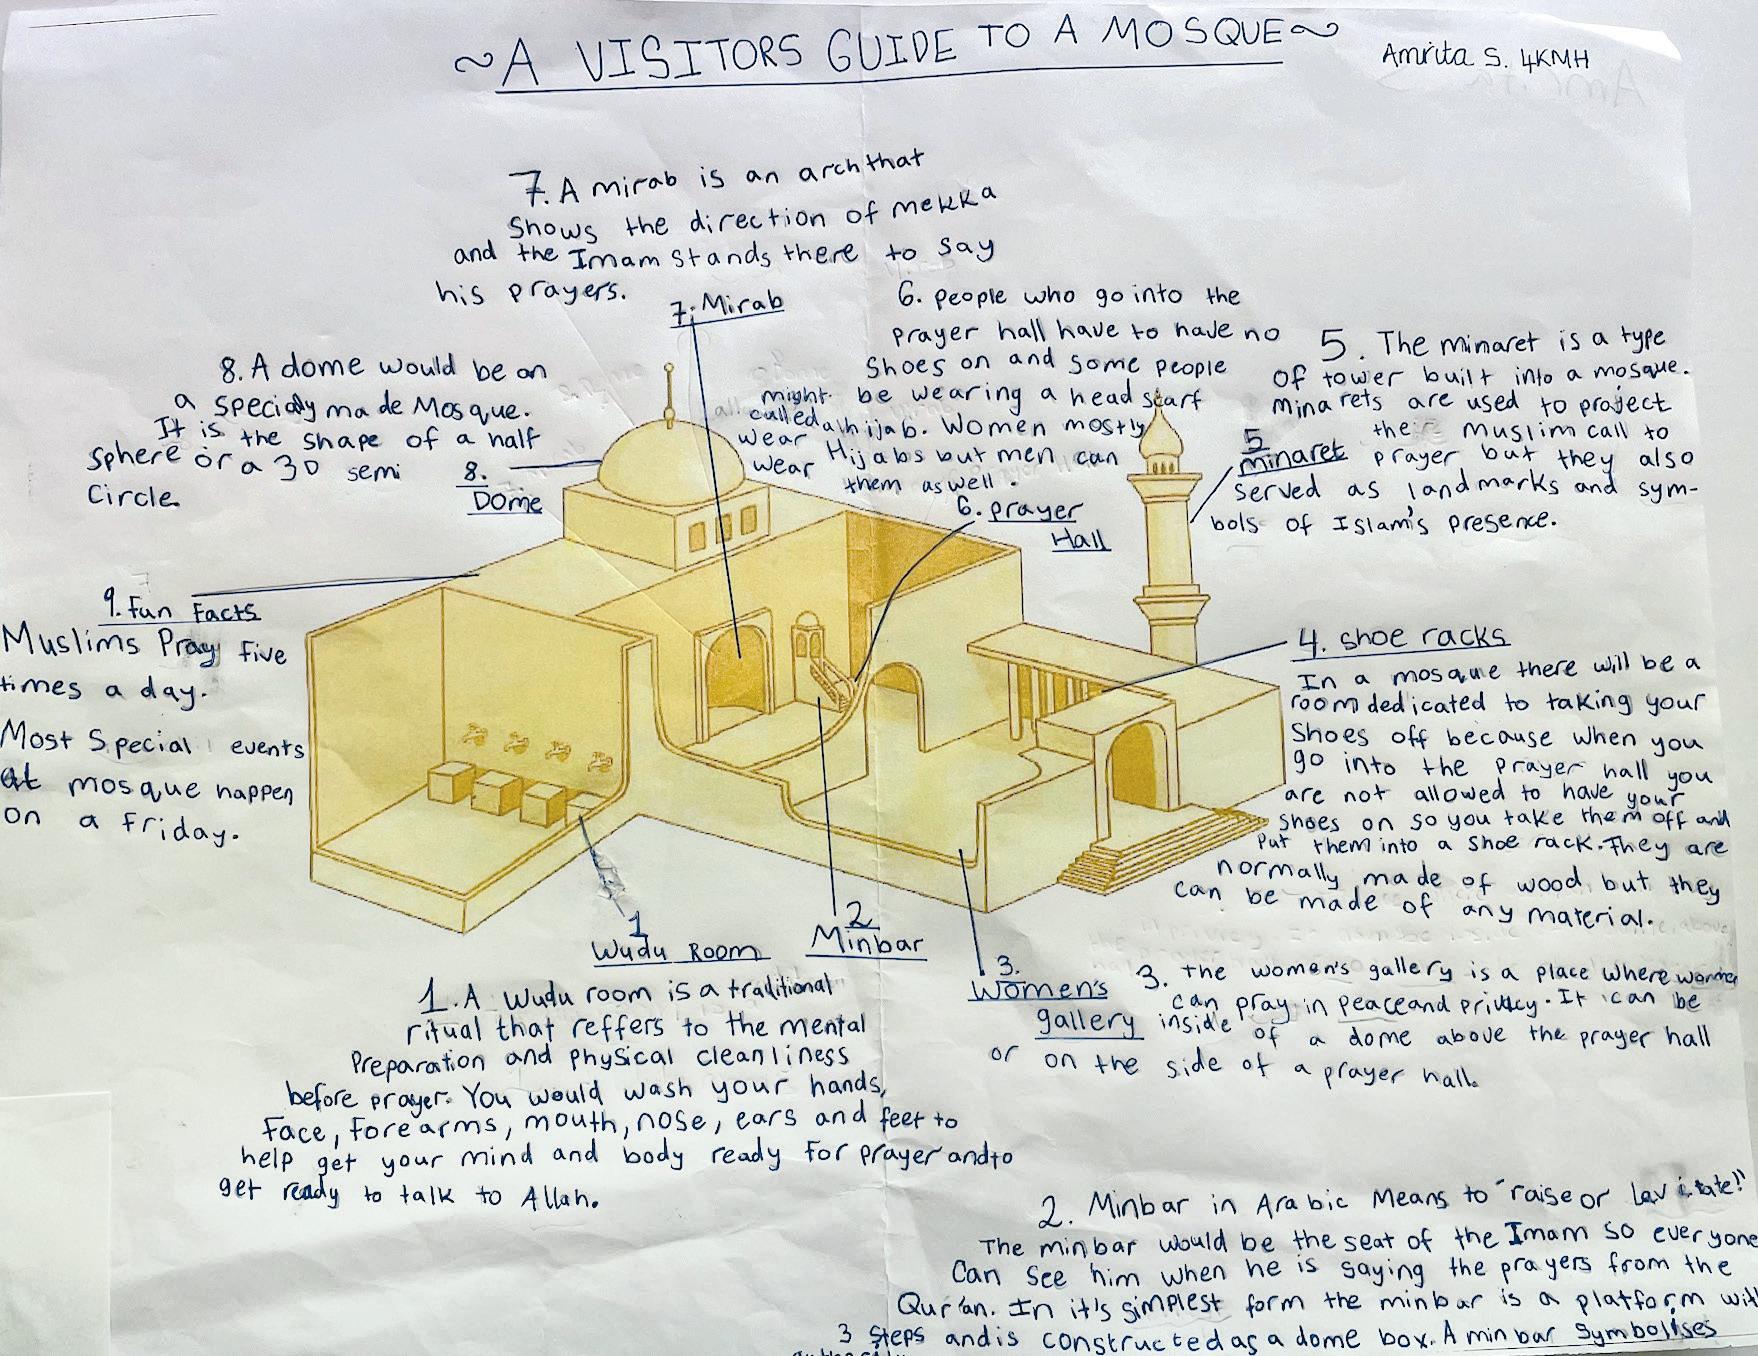 ~A VISITORS GUIDE TO A MOSQUE~
Amrita S. 4KMH
7. A mirab is an arch that
Shows the direction of mekka
and the Imam stands there to say
his prayers.
7. Mirab
6. people who go into the
prayer hall have to have no
shoes on and some people
might be wearing a head scarf
called a hijab. Women mostly
wear Hijabs but men can
wear them as well.
6. prayer
Hall
5. The minaret is a type
of tower built into a mosque.
Minarets are used to project
their Muslim call to
prayer but they also
served as landmarks and sym-
bols of Islam's presence.
5
minaret
8. A dome would be on
a specialy made Mosque.
It is the shape of a half
sphere or a 3D semi
Circle.
8.
Dome
9. Fun Facts
Muslims Pray five
times a day.
Most Special events
at mosque happen
on a friday.
4. shoe racks
In a mosque there will be a
room dedicated to taking your
shoes off because when you
go into the prayer hall you
are not allowed to have your
shoes on so you take them off and
put them into a shoe rack. They are
normally made of wood but they
can be made of any material.
1
Wudu Room
2
Minbar
3.
Women's
gallery
1. A wudu room is a traditional
ritual that reffers to the mental
Preparation and physical cleanliness
before prayer. You would wash your hands,
face, forearms, mouth, nose, ears and feet to
help get your mind and body ready for prayer and to
get ready to talk to Allah.
3. the women's gallery is a place where women
can pray in peace and privacy. It can be
inside of a dome above the prayer hall
or on the side of a prayer hall.
2. Minbar in Arabic Means to "raise or levitate!"
The minbar would be the seat of the Imam so everyone
Can see him when he is saying the prayers from the
Qur'an. In it's simplest form the minbar is a platform with
3 steps and is constructed as a dome box. A minbar symbolises